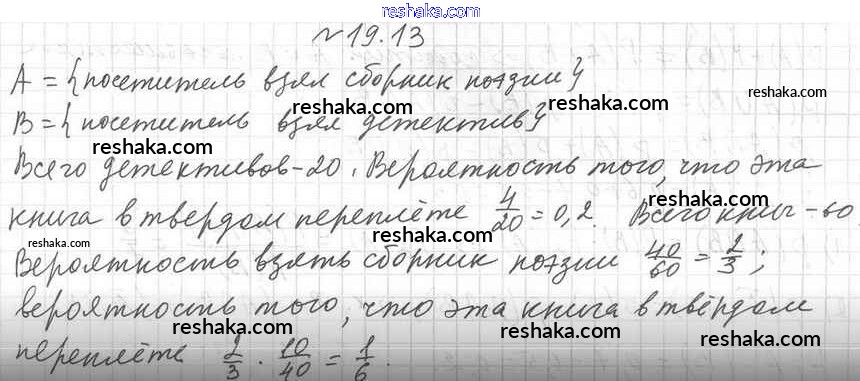 reshaka.com
№19.13
A = {посетитель взял сборник поэзии}
reshaka.com
reshaka.com
B = {посетитель взял детектив}
reshaka.com
Всего детективов - 20. Вероятность того, что эта
reshaka.com
книга в твердом переплёте 4/20 = 0,2. Всего книг - 60.
reshaka.com
reshaka.com
Вероятность взять сборник поэзии 40/60 = 2/3;
вероятность того, что эта книга в твёрдом
reshaka.com
reshaka.com
переплёте 2/3 · 10/40 = 1/6.
reshaka.com